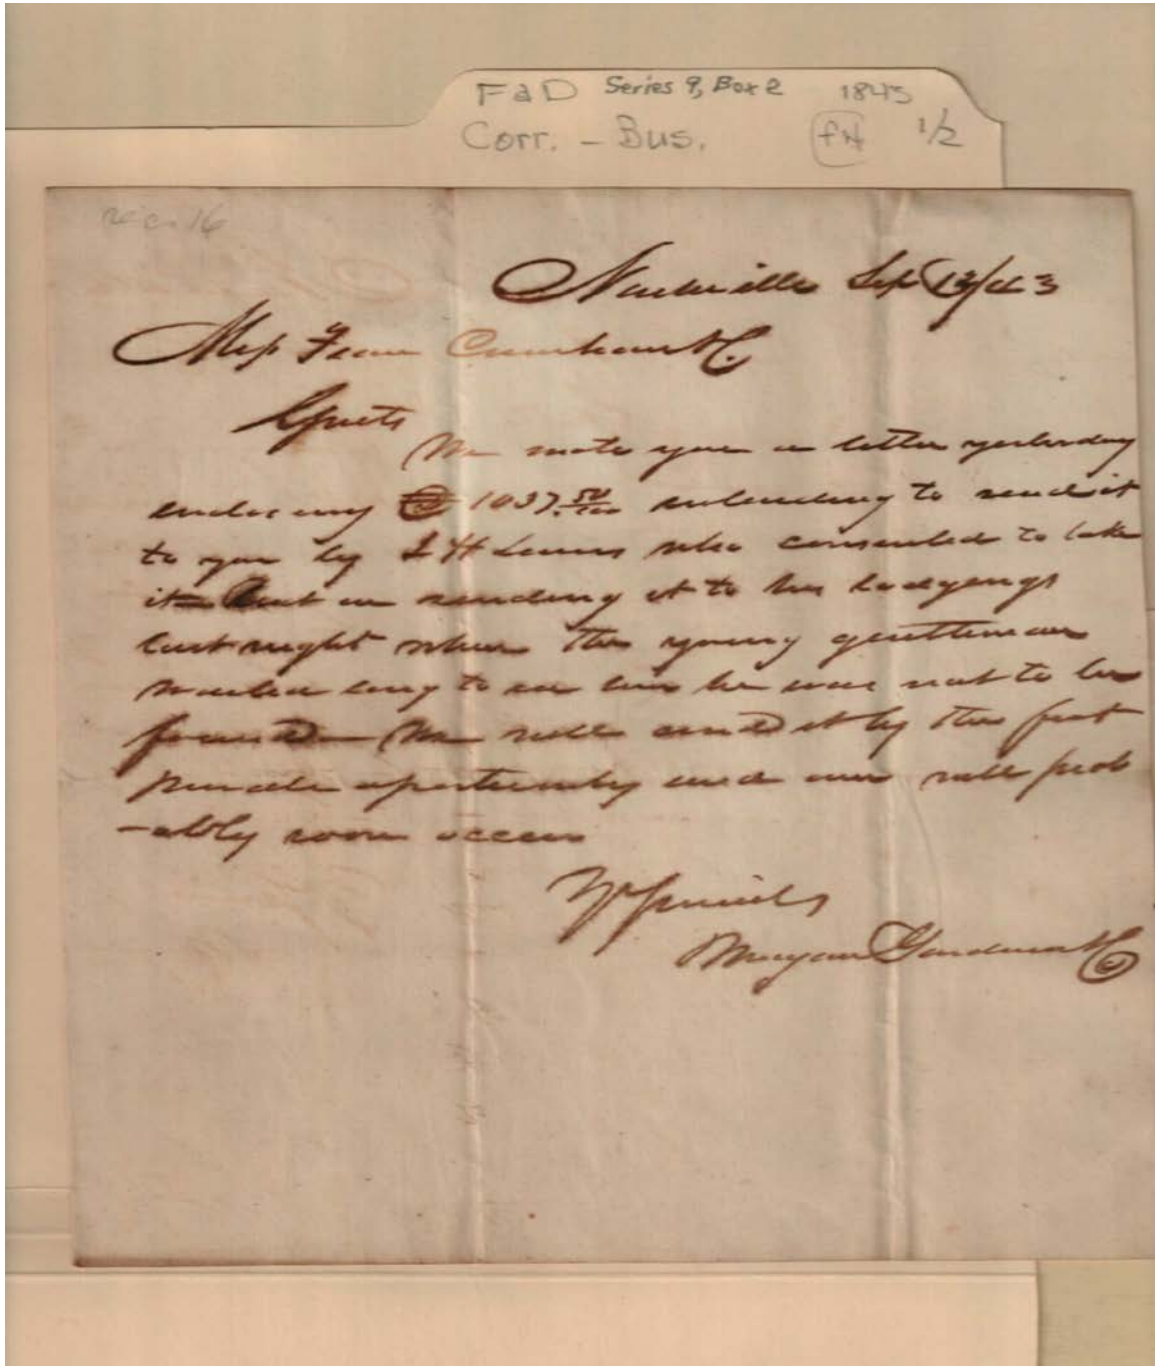 F & D Series 9, Box 2 1843
Corr. - Bus. PH 1/2
rec. 16
Nashville Sept 13/43
Mess
Gents
We wrote you a letter yesterday
enclosing 1037.50/100 intending to send it
to you by H Lewis who consented to take
it But on sending it to his lodgings
last night where the young gentleman
waited long to see him he was not to be
found We will send it by the first
private oportunity and one will prob
-ably soon occur
Yr friends
Morgan Gardner & Co